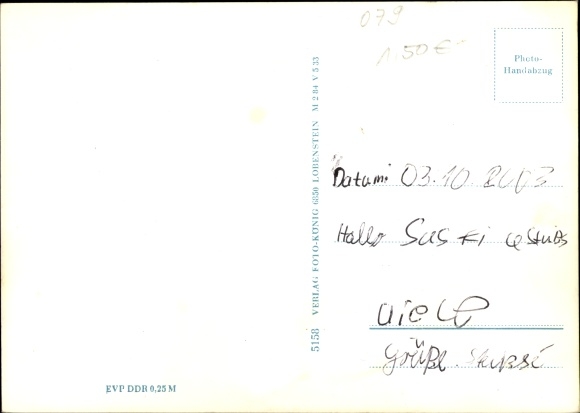 079
1.50 €
Photo-
Handabzug
5158 VERLAG FOTO-KÖNIG 6850 LOBENSTEIN M 2 84 V 5 33
Datum: 03.10.2003
Hallo
viele
Grüße
EVP DDR 0,25 M